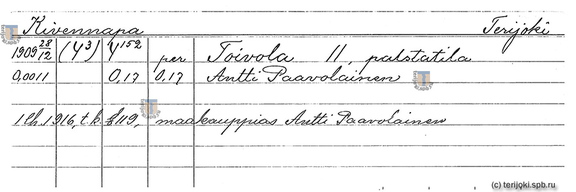 Kivennapa Terijoki
1909 28/12 (43) 4152 per Toivola II, palstatila
0,0011 0,17 0,17 Antti Paavolainen
1916, t.k. § 119, maakauppias Antti Paavolainen
(c) terijoki.spb.ru